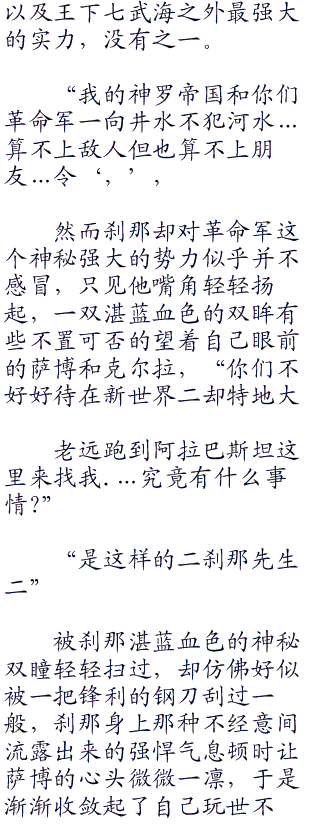 以及王下七武海之外最强大
的实力，没有之一。
“我的神罗帝国和你们
革命军一向井水不犯河水…
算不上敌人但也算不上朋
友…令‘，’，
然而刹那却对革命军这
个神秘强大的势力似乎并不
感冒，只见他嘴角轻轻扬
起，一双湛蓝血色的双眸有
些不置可否的望着自己眼前
的萨博和克尔拉，“你们不
好好待在新世界二却特地大
老远跑到阿拉巴斯坦这
里来找我.…究竟有什么事
情?”
“是这样的二刹那先生
二”
被刹那湛蓝血色的神秘
双瞳轻轻扫过，却仿佛好似
被一把锋利的钢刀刮过一
般，刹那身上那种不经意间
流露出来的强悍气息顿时让
萨博的心头微微一凛，于是
渐渐收敛起了自己玩世不